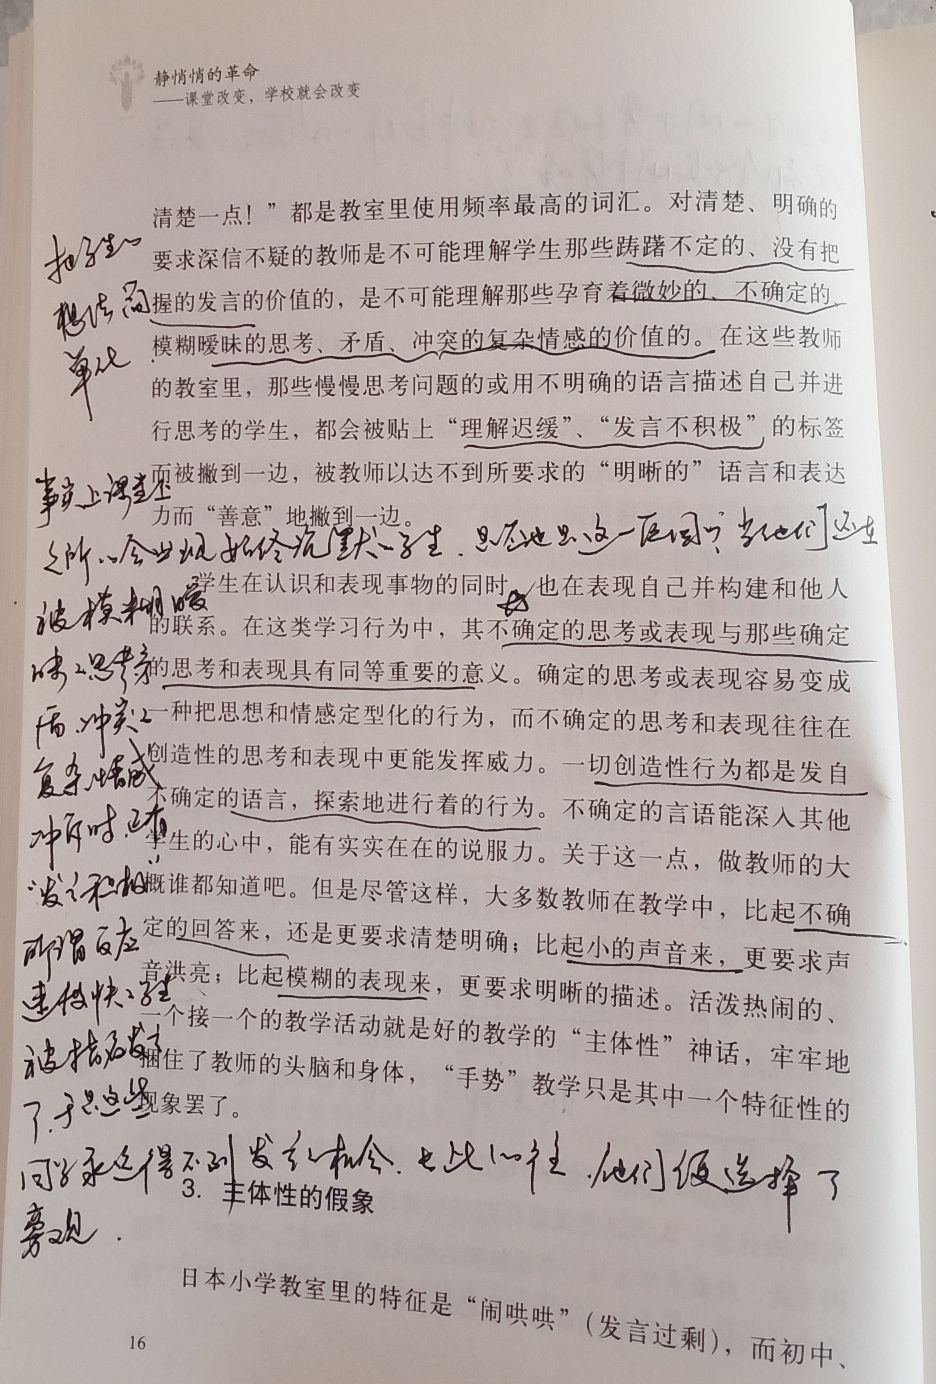 静悄悄的革命
——课堂改变，学校就会改变
清楚一点！”都是教室里使用频率最高的词汇。对清楚、明确的
要求深信不疑的教师是不可能理解学生那些踌躇不定的、没有把
握的发言的价值的，是不可能理解那些孕育着微妙的、不确定的、
模糊暧昧的思考、矛盾、冲突的复杂情感的价值的。在这些教师
的教室里，那些慢慢思考问题的或用不明确的语言描述自己并进
行思考的学生，都会被贴上“理解迟缓”、“发言不积极”的标签
而被撇到一边，被教师以达不到所要求的“明晰的”语言和表达
力而“善意”地撇到一边。
学生在认识和表现事物的同时，也在表现自己并构建和他人
的联系。在这类学习行为中，其不确定的思考或表现与那些确定
的思考和表现具有同等重要的意义。确定的思考或表现容易变成
一种把思想和情感定型化的行为，而不确定的思考和表现往往在
创造性的思考和表现中更能发挥威力。一切创造性行为都是发自
不确定的语言，探索地进行着的行为。不确定的言语能深入其他
学生的心中，能有实实在在的说服力。关于这一点，做教师的大
概谁都知道吧。但是尽管这样，大多数教师在教学中，比起不确
定的回答来，还是更要求清楚明确；比起小的声音来，更要求声
音洪亮；比起模糊的表现来，更要求明晰的描述。活泼热闹的、
一个接一个的教学活动就是好的教学的“主体性”神话，牢牢地
捆住了教师的头脑和身体，“手势”教学只是其中一个特征性的
现象罢了。
3. 主体性的假象
日本小学教室里的特征是“闹哄哄”（发言过剩），而初中、
16
把学生的
想法简
单化
事实上课堂上
之所以会出现始终沉默的学生，是否也是这一原因？当他们还在
被模糊暧
昧的思考矛
盾、冲突的
复杂情感
冲斥时，还有
“发言积极”
所谓反应
速度快的学生
被指名发言
了，于是这些
同学永远得不到发言机会，长此以往，他们便选择了
旁观．